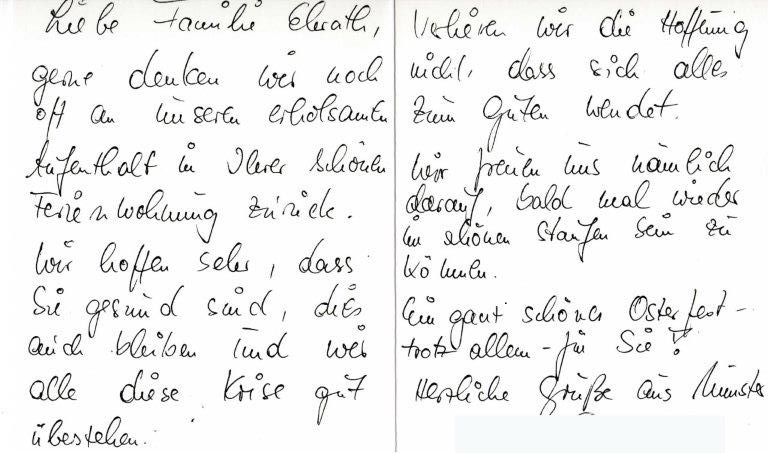 Liebe Familie Ehrath,
gerne denken wir noch
oft an unseren erholsamen
Aufenthalt in Ihrer schönen
Ferienwohnung zurück.
Wir hoffen sehr, dass
Sie gesund sind, dies
auch bleiben und wir
alle diese Krise gut
überstehen.
Verlieren wir die Hoffnung
nicht, dass sich alles
zum Guten wendet.
Wir freuen uns nämlich
darauf, bald mal wieder
im schönen Staufen sein zu
können.
Ein ganz schönes Osterfest -
trotz allem - für Sie!
Herzliche Grüße aus Münster